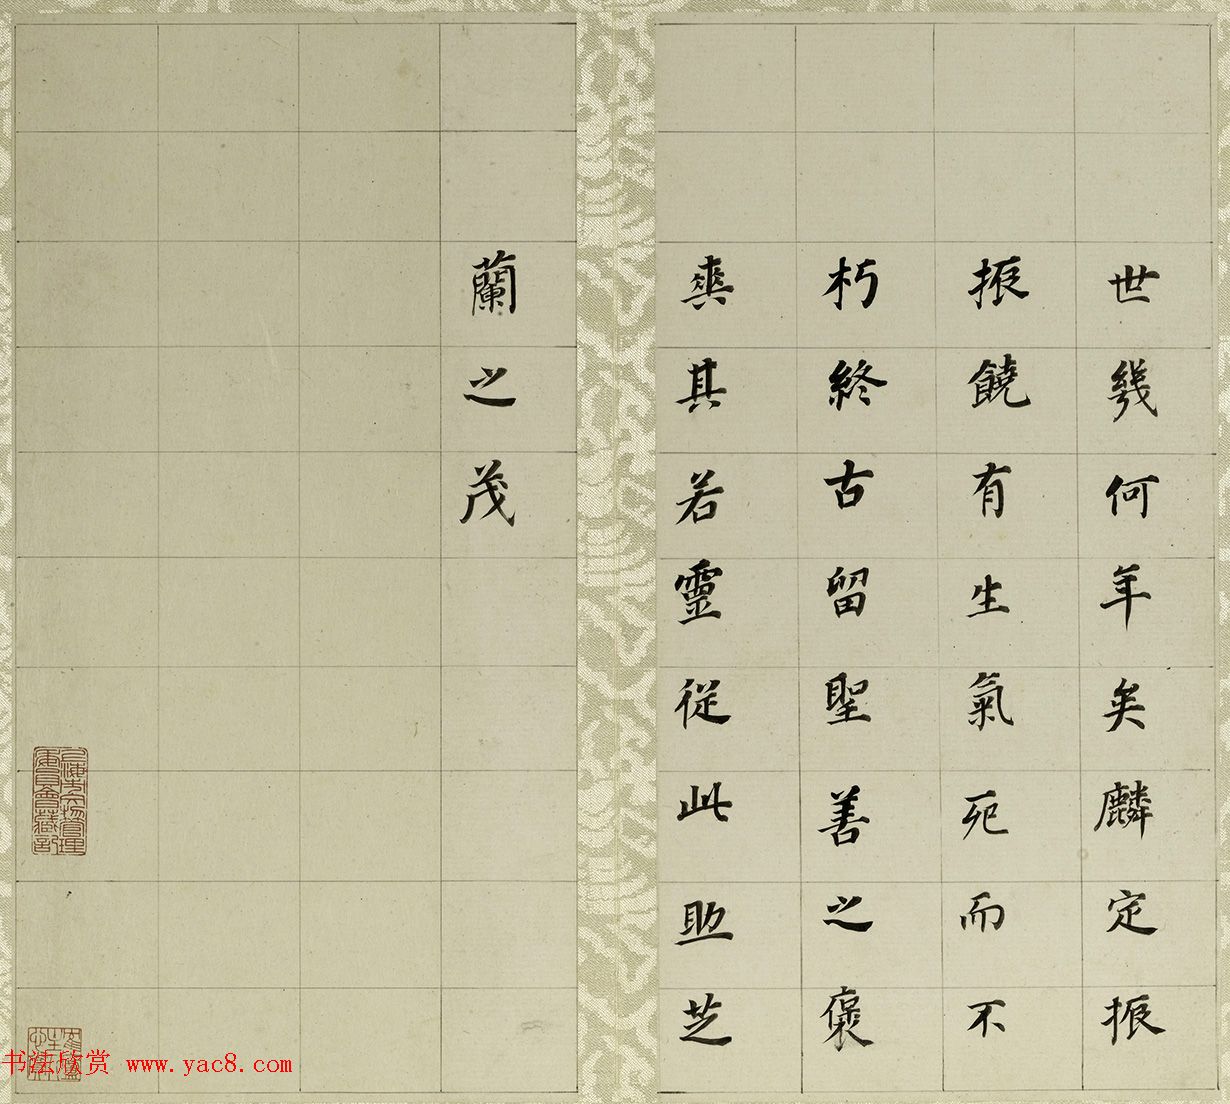 世幾何年矣麟定振
振饒有生氣死而不
朽終古留聖善之褒
爽其若靈從此助芝
蘭之茂
书法欣赏 www.yac8.com